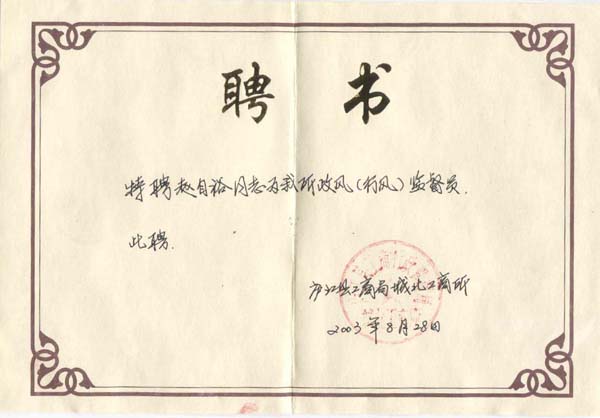 聘书
特聘赵自裕同志为我所政风（行风）监督员.
此聘.
庐江县工商局城北工商所
2003年8月28日